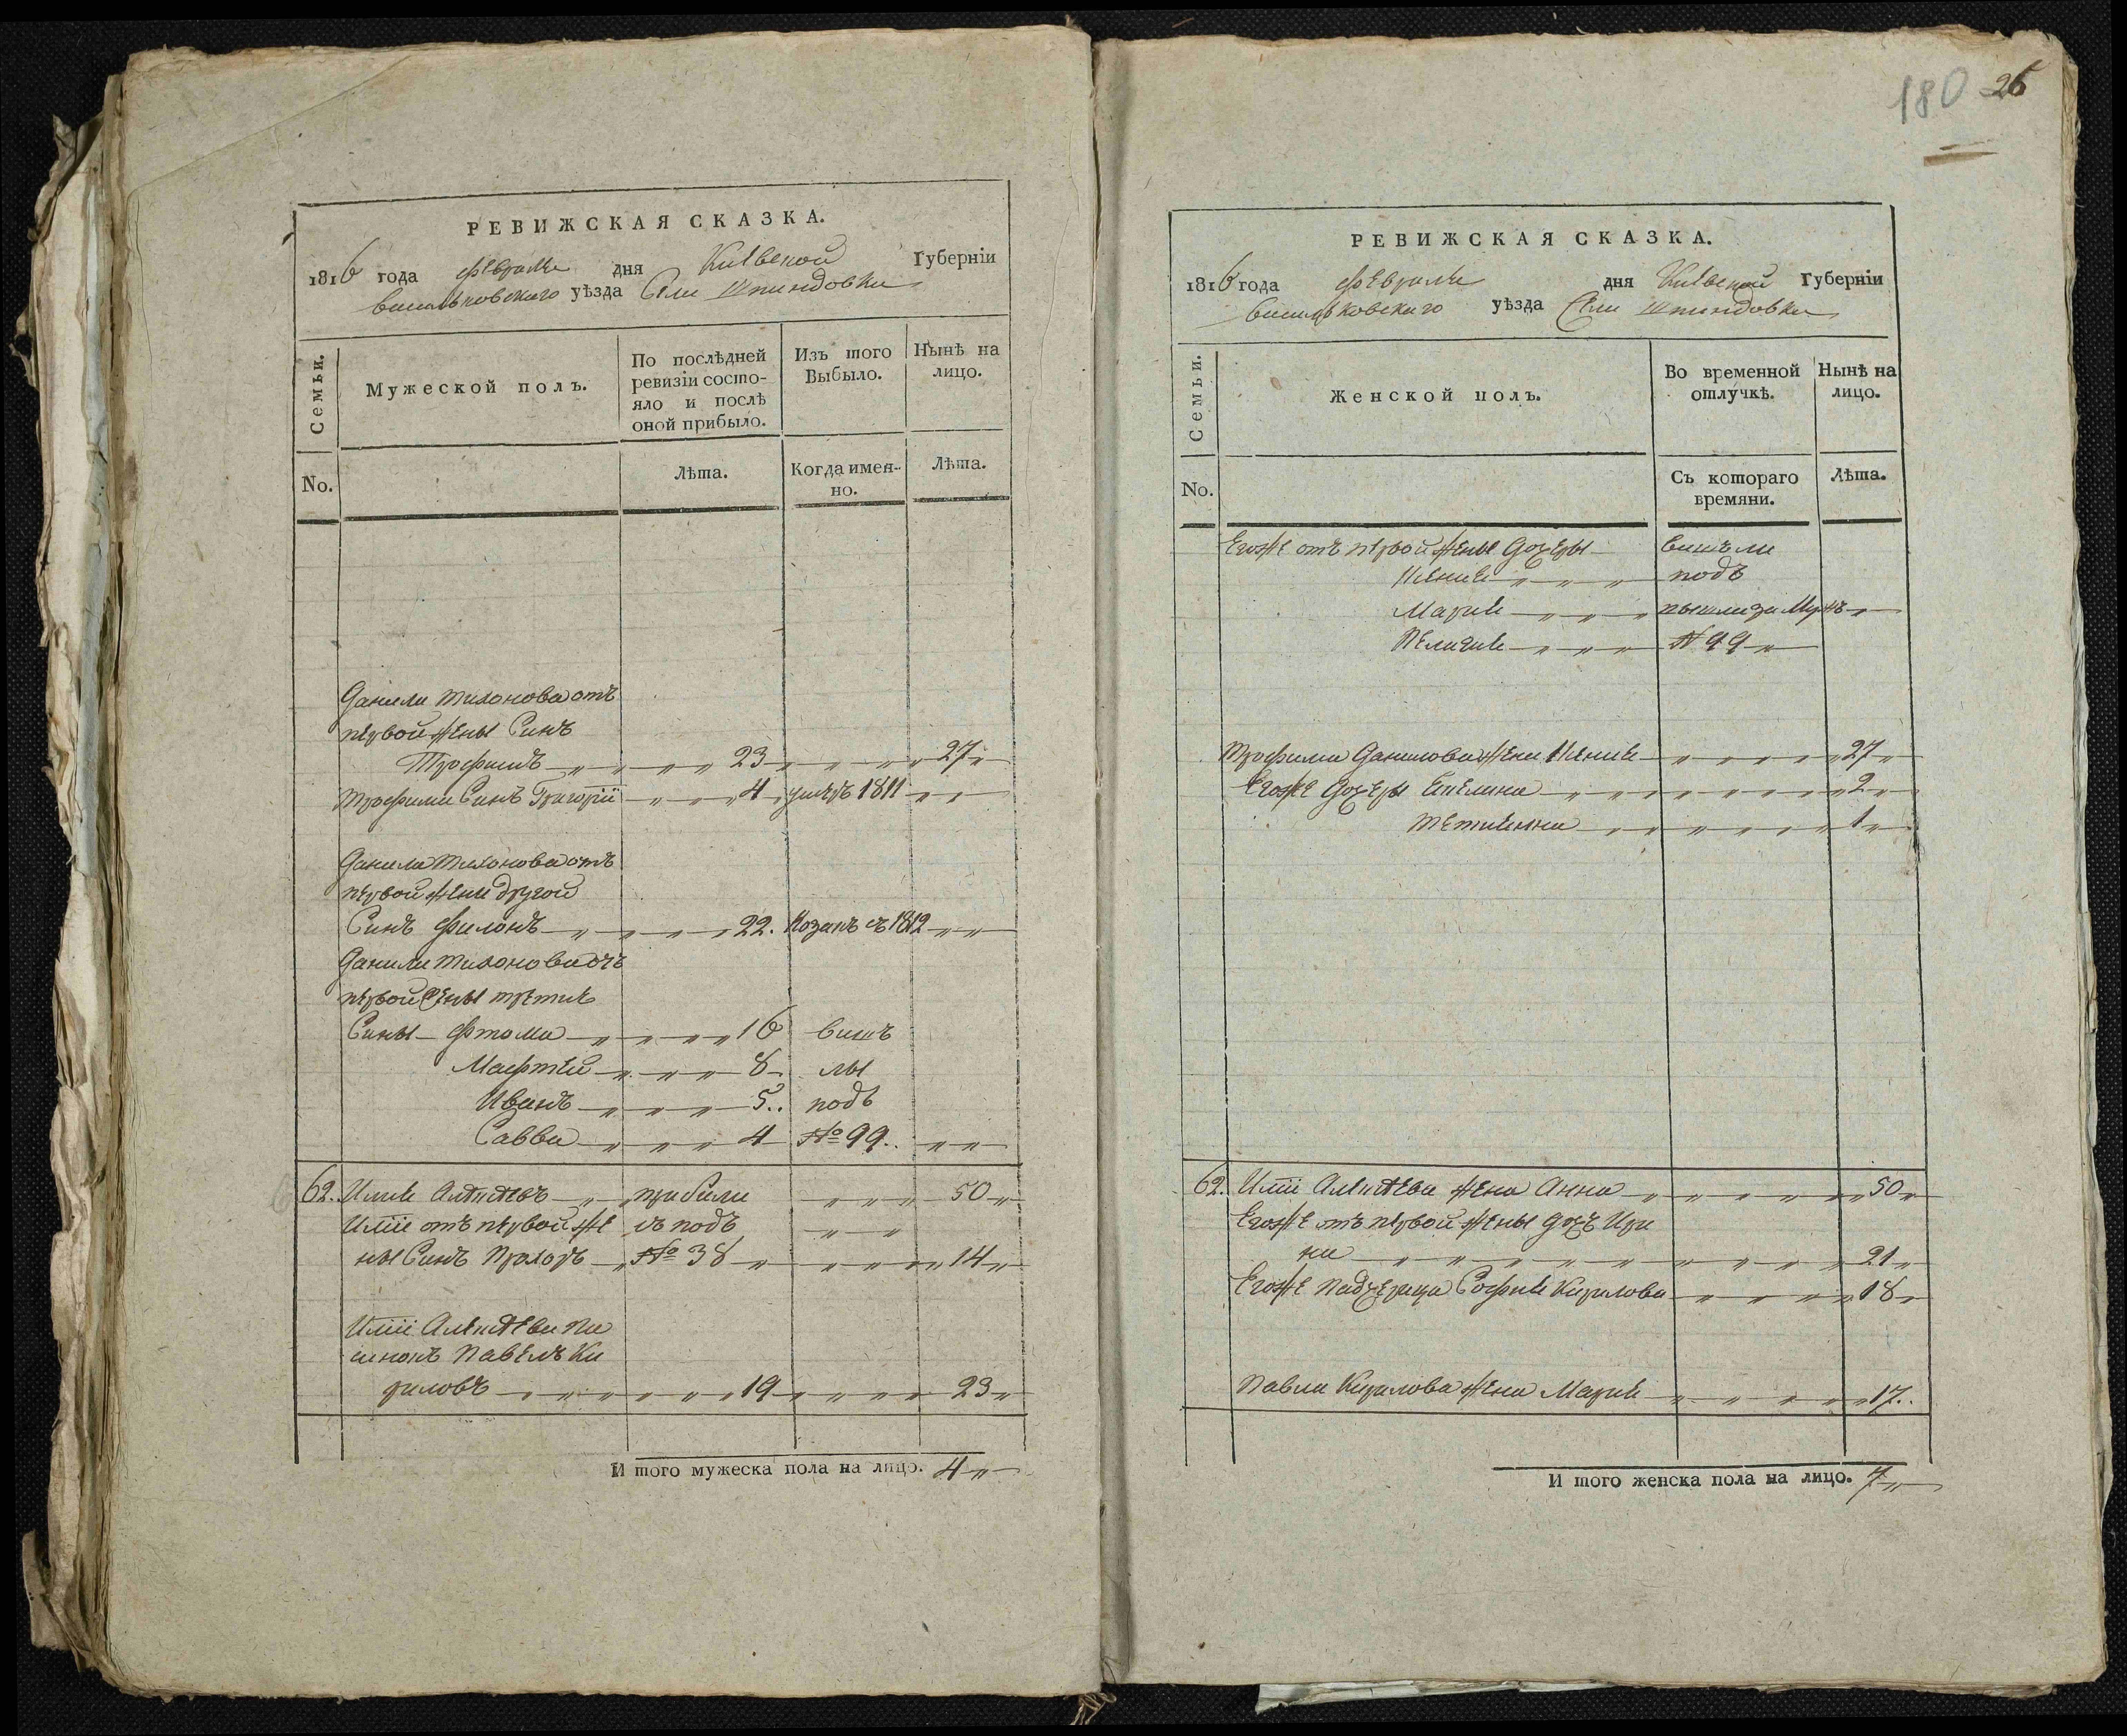 РЕВИЖСКАЯ СКАЗКА.
1816 года февраля дня Киевской Губерніи
васильковского уѣзда Села Шпиндовки
Семьи.
Мужеской полъ.
По послѣдней ревизіи состояло и послѣ оной прибыло.
Изъ того Выбыло.
Нынѣ на лицо.
No.
Лѣта.
Когда именно.
Лѣта.
Данила Тихонова отъ
первой жены Синъ
Трофимъ 23 27
Трофима Синъ Григорій 4 умеръ 1811
Данила Тихонова отъ
первой жени другой
Синъ Филонъ 22. Козакъ съ 1812
Данила Тихонова отъ
первой жены третие
Сины Фтома 16
Мафтей 8
Иванъ 5 подъ
Савва 4 № 99
62. Илия Алексѣевъ прибили 50
Иліи отъ первой же съ подъ
ны Синъ Прохоръ № 38 14
Иліи Алексѣева па
синокъ Павелъ Ки
риловъ 19 23
И того мужеска пола на лицо. 4
180 26
РЕВИЖСКАЯ СКАЗКА.
1816 года февраля дня Киевской Губерніи
васильковского уѣзда Села Шпиндовки
Семьи.
Женской полъ.
Во временной отлучкѣ.
Нынѣ на лицо.
No.
Съ котораго времяни.
Лѣта.
Егоже отъ первой жены дочеры
Ксения подъ
Мария
Пелагия № 99
Трофима Данилова жена Ксения 27
Егоже дочеры 2
Тетиянна 1
62. Иліи Алексѣева жена Анна 50
Егоже отъ первой жены дочь Ири
на 21
Егоже падчерица София Кирилова 18
Павла Кирилова жена Мария 17
И того женска пола на лицо. 7